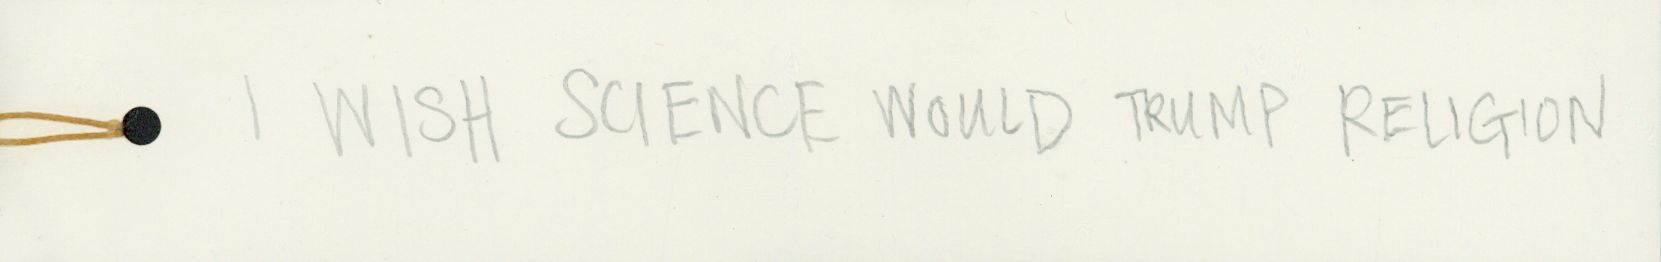 I WISH SCIENCE WOULD TRUMP RELIGION